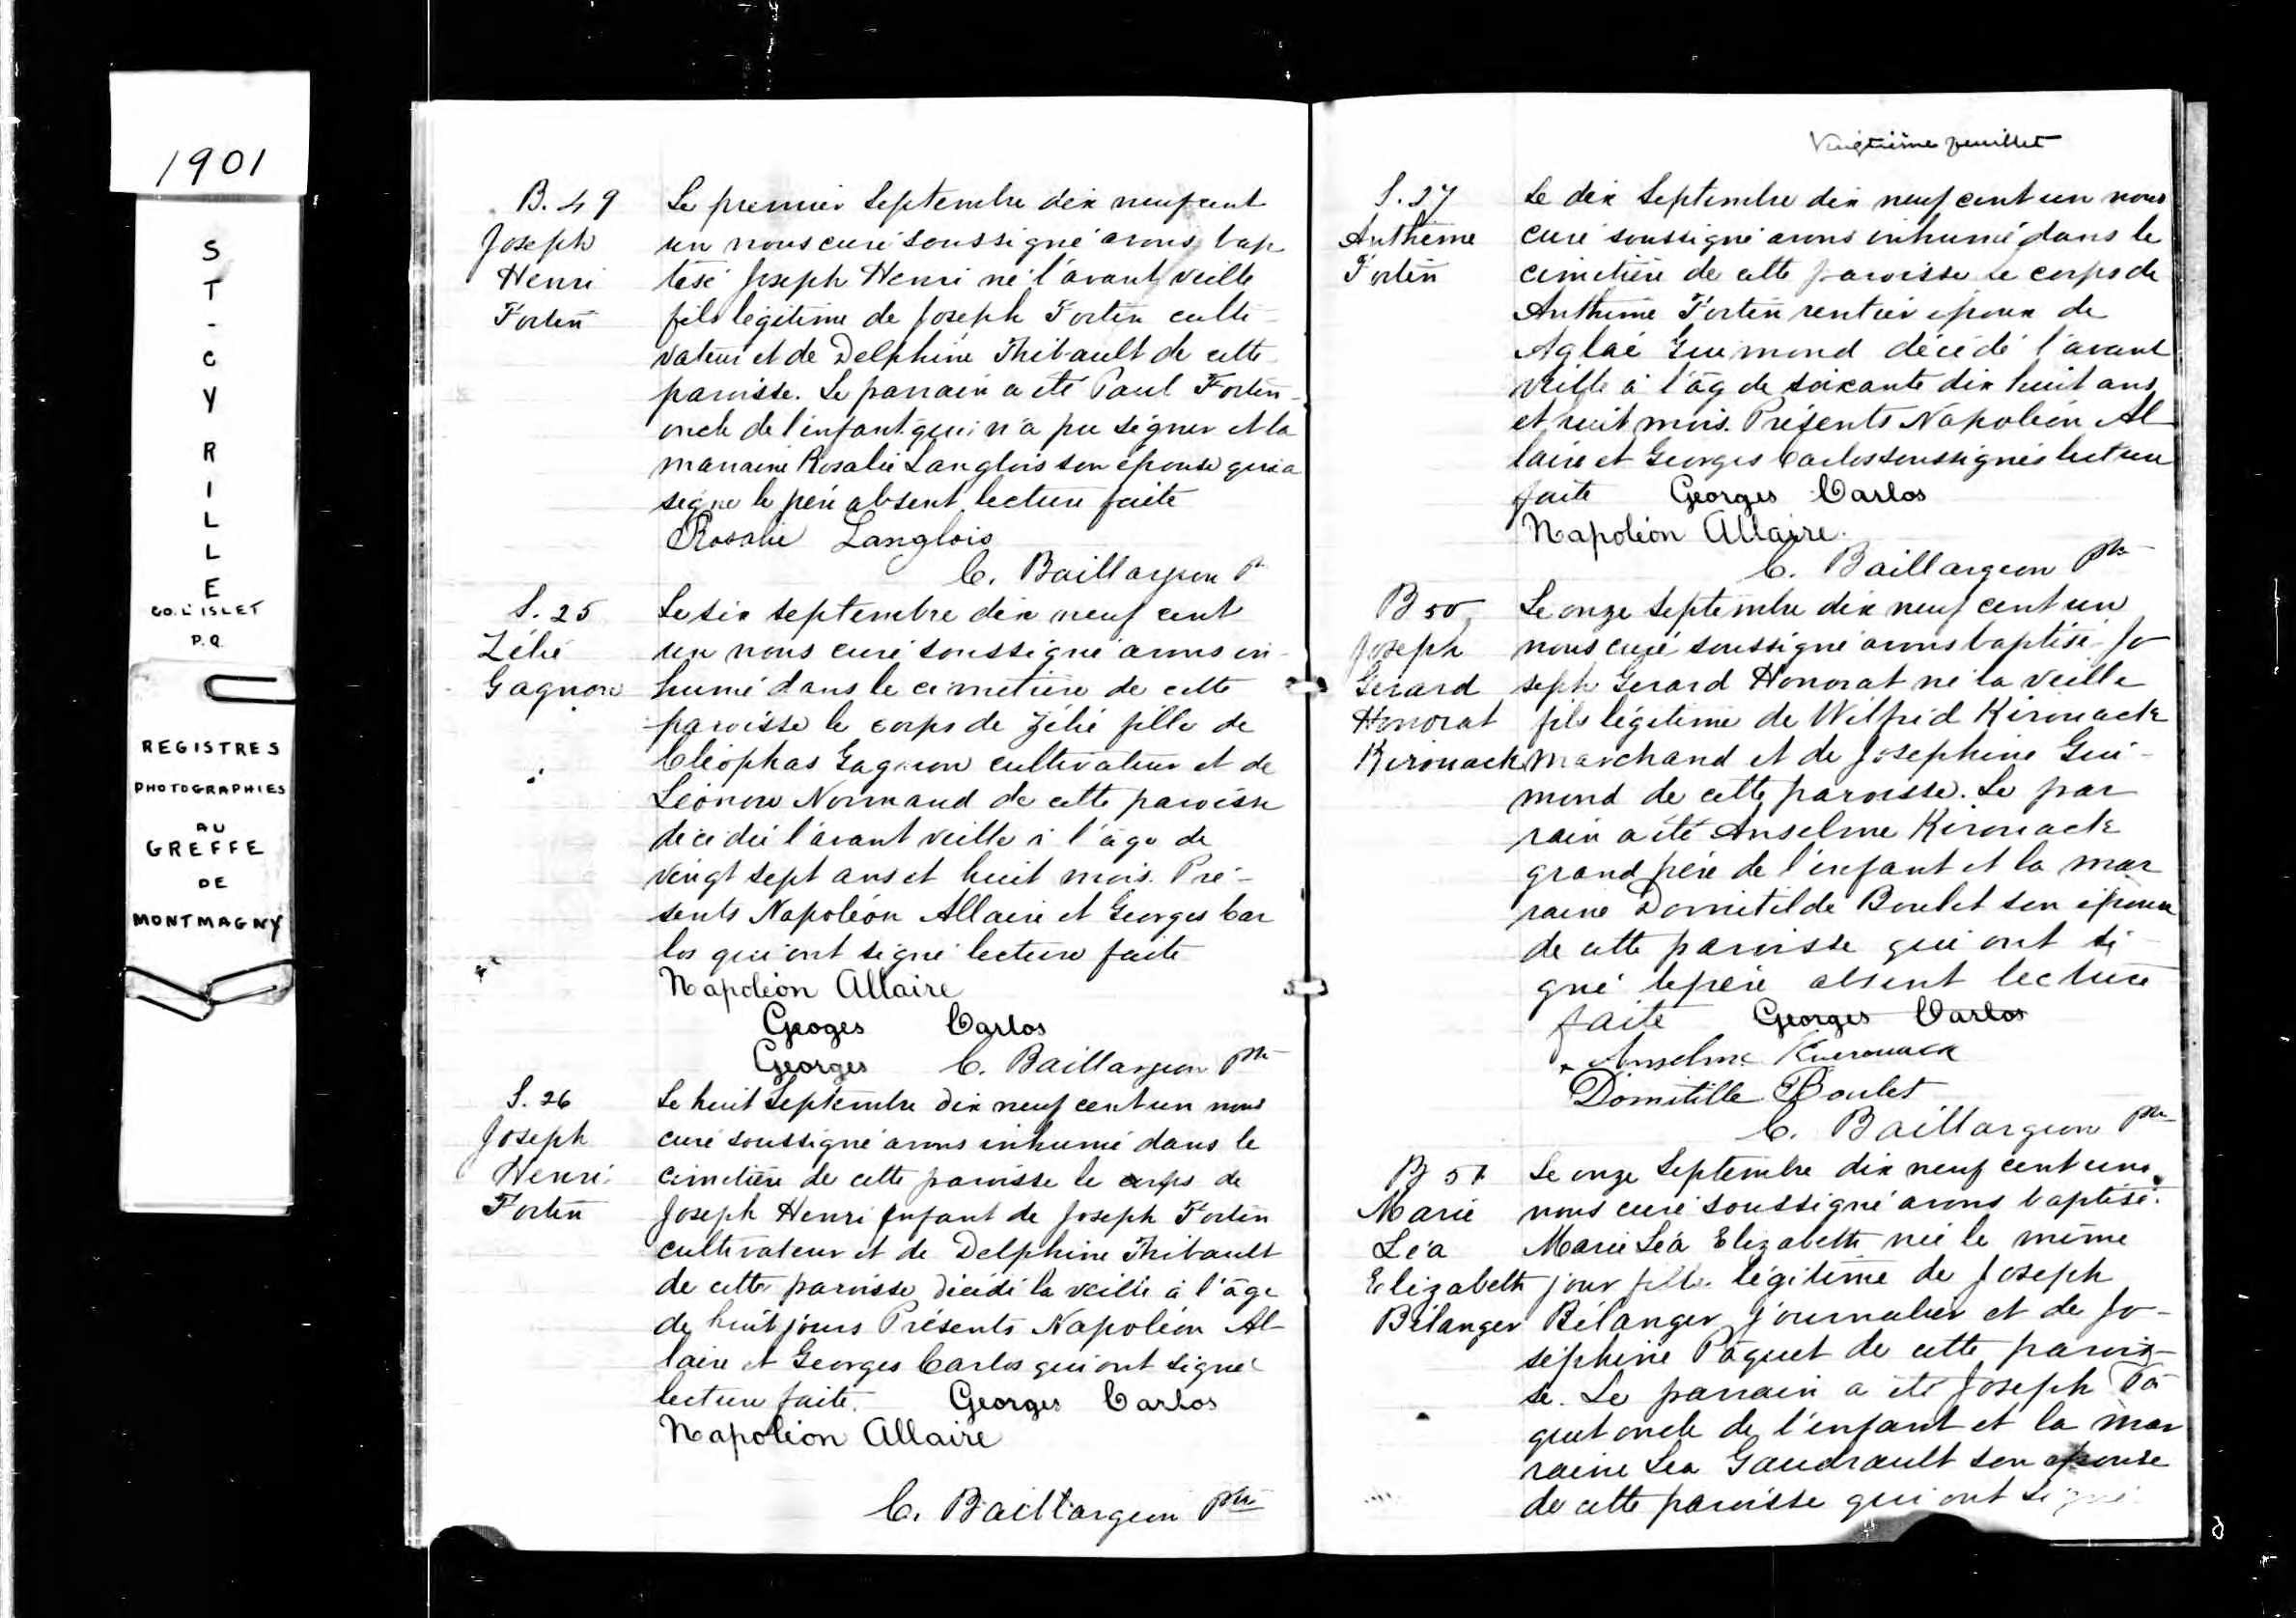 1901
ST-CYRILLE
CO. L'ISLET
P.Q.
REGISTRES
PHOTOGRAPHIES
AU
GREFFE
DE
MONTMAGNY
B. 49
Joseph
Henri
Fortin
Le premier Septembre dix neuf cent
un nous curé soussigné avons bap
tisé Joseph Henri né l'avant veille
fils légitime de Joseph Fortin culti-
vateur et de Delphine Thibault de cette
paroisse. Le parrain a été Paul Fortin
oncle de l'enfant qui n'a pu signer et la
marraine Rosalie Langlois son épouse qui a
signé le père absent lecture faite
Rosalie Langlois
C. Baillargeon P
S. 25
Zélié
Gagnon
Le six septembre dix neuf cent
un nous curé soussigné avons in-
humé dans le cimetière de cette
paroisse le corps de Zélié fille de
Cléophas Gagnon cultivateur et de
Léonore Normand de cette paroisse
décédée l'avant veille à l'âge de
vingt sept ans et huit mois. Pré-
sents Napoléon Allaire et Georges Car
los qui ont signé lecture faite
Napoléon Allaire
Geoges Carlos
Georges C. Baillargeon Ptr
S. 26
Joseph
Henri
Fortin
Le huit Septembre dix neuf cent un nous
curé soussigné avons inhumé dans le
cimetière de cette paroisse le corps de
Joseph Henri enfant de Joseph Fortin
cultivateur et de Delphine Thibault
de cette paroisse décédé la veille à l'âge
de huit jours Présents Napoléon Al-
laire et Georges Carlos qui ont signé
lecture faite. Georges Carlos
Napoléon Allaire
C. Baillargeon Ptre
Vingtième feuillet
S. 27
Anthime
Fortin
Le dix Septembre dix neuf cent un nous
curé soussigné avons inhumé dans le
cimetière de cette paroisse le corps de
Anthime Fortin rentier époux de
Aglaé Guimond décédé l'avant
veille à l'âg de soixante dix huit ans
et huit mois. Présents Napoléon Al
laire et Georges Carlos soussignés lecture
faite Georges Carlos
Napoléon Allaire.
C. Baillargeon Ptr
B 50
Joseph
Gerard
Honorat
Kirouack
Le onze Septembre dix neuf cent un
nous curé soussigné avons baptisé Jo
seph Gerard Honorat né la veille
fils légitime de Wilfrid Kirouack
marchand et de Josephine Gui-
mond de cette paroisse. Le par
rain a été Anselme Kirouack
grand père de l'enfant et la mar
raine Domitilde Boulet son épouse
de cette paroisse qui ont si-
gné le père absent lecture
faite Georges Carlos
Anselme Kuerouack
Domitille Boulet
C. Baillargeon Ptr
B 51
Marie
Léa
Elizabeth
Bélanger
Le onze Septembre dix neuf cent un
nous curé soussigné avons baptisé
Marie Léa Elizabeth née le même
jour fille légitime de Joseph
Bélanger journalier et de Jo-
séphine Paquet de cette parois-
se. Le parrain a été Joseph Pa
quet oncle de l'enfant et la mar
raine Lea Gaudrault son épouse
de cette paroisse qui ont signé